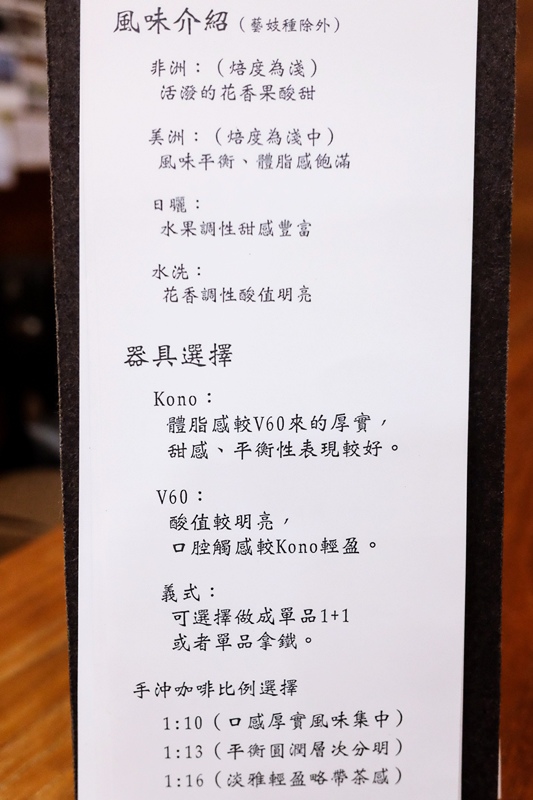 風味介紹（藝妓種除外）
非洲：（焙度為淺）
活潑的花香果酸甜
美洲：（焙度為淺中）
風味平衡、體脂感飽滿
日曬：
水果調性甜感豐富
水洗：
花香調性酸值明亮
器具選擇
Kono：
體脂感較V60來的厚實，
甜感、平衡性表現較好。
V60：
酸值較明亮，
口腔觸感較Kono輕盈。
義式：
可選擇做成單品1+1
或者單品拿鐵。
手沖咖啡比例選擇
1:10（口感厚實風味集中）
1:13（平衡圓潤層次分明）
1:16（淡雅輕盈略帶茶感）